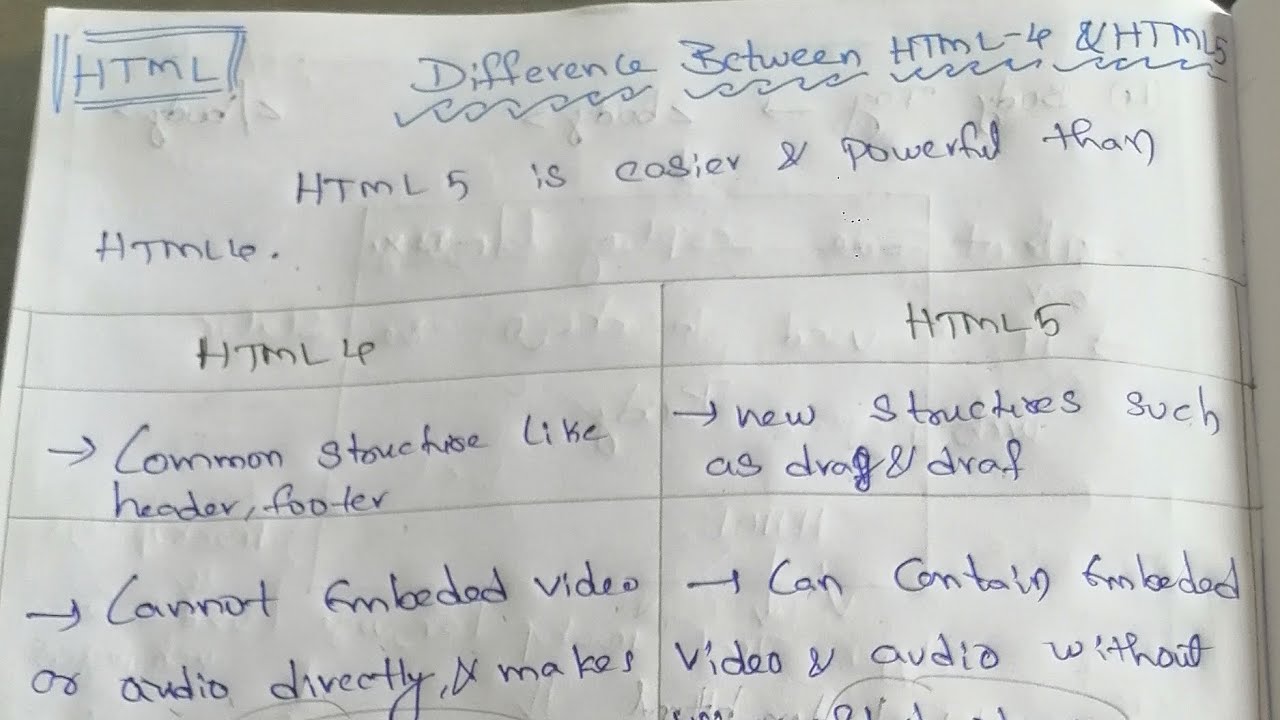 HTML
Difference Between HTML-4 & HTML5
HTML 5 is easier & powerful than
HTML4.
HTML 4
HTML 5
→ Common structure like
header, footer
→ new structures such
as drag & draf
→ Cannot Embeded video
or audio directly, & makes
→ Can Contain Embeded
video & audio without